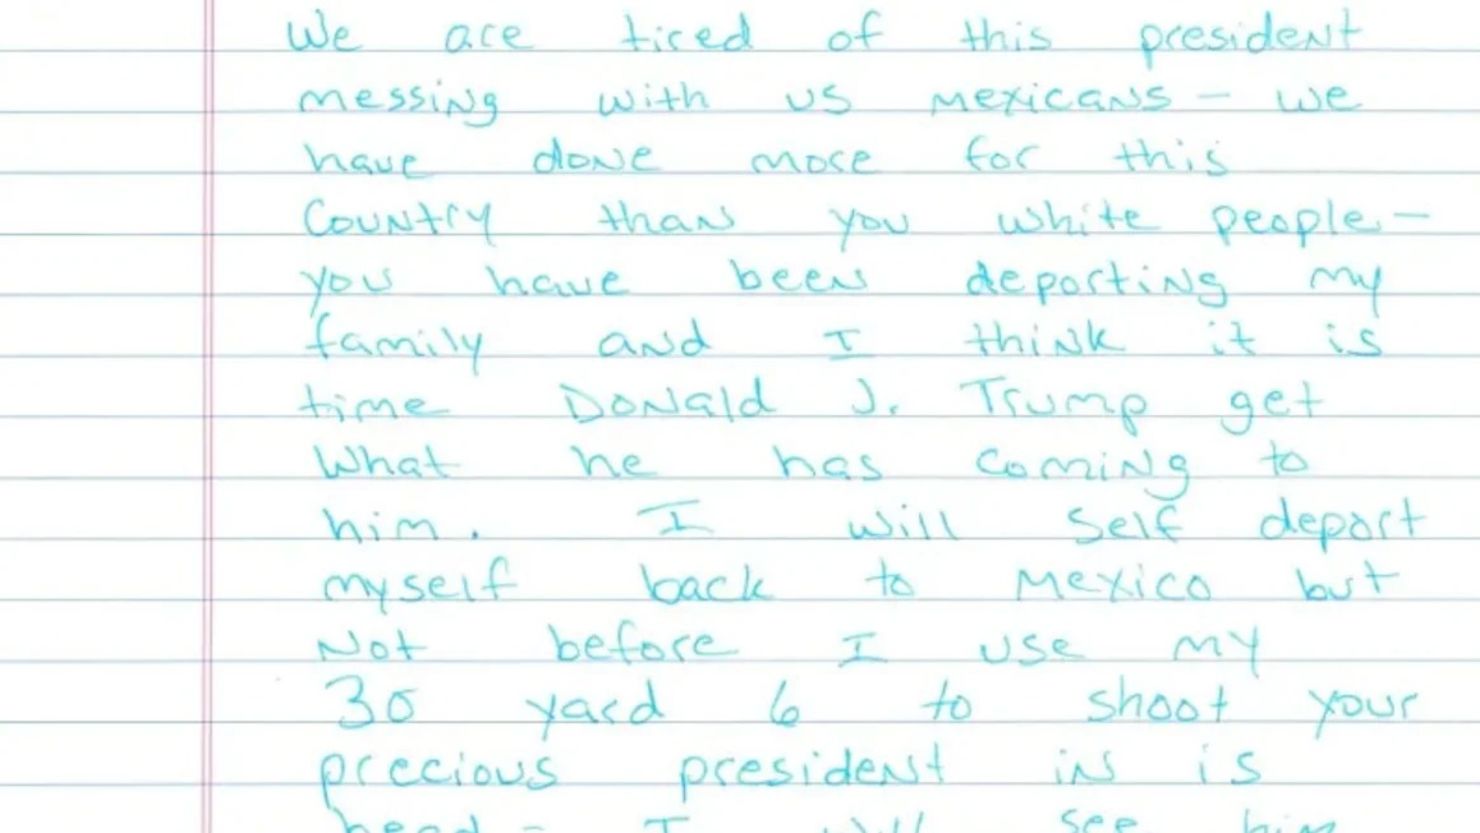 We are tired of this president
messing with us mexicans - we
have done more for this
Country than you white people -
you have been deporting my
family and I think it is
time Donald J. Trump get
what he has coming to
him. I will self deport
myself back to mexico but
not before I use my
30 yard 6 to shoot your
precious president in is
head - I will see him